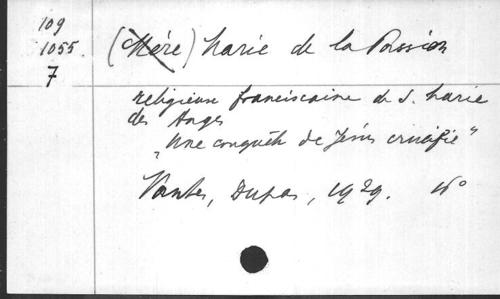 109
1055
7
(Mère) Marie de la Passion
religieuse franciscaine de S. Marie
des Anges
"Une conquête de Jésus crucifié"
Vanves, Dupas, 1929. 16°